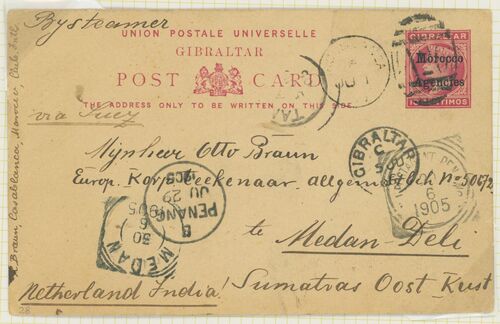 By steamer
UNION POSTALE UNIVERSELLE
GIBRALTAR
POST CARD
THE ADDRESS ONLY TO BE WRITTEN ON THIS SIDE
GIBRALTAR
Morocco
Agencies
via Suez
GIBRALTAR
Mijnheer Otto Braun
Europ. Korp. allgem.
6
1905
PENANG
JU 29
1905
te
Medan-Deli
MEDAN
30
6
1905
Netherland India! Sumatras Oost-Kust
Braun, Casablanca, Marocco
28